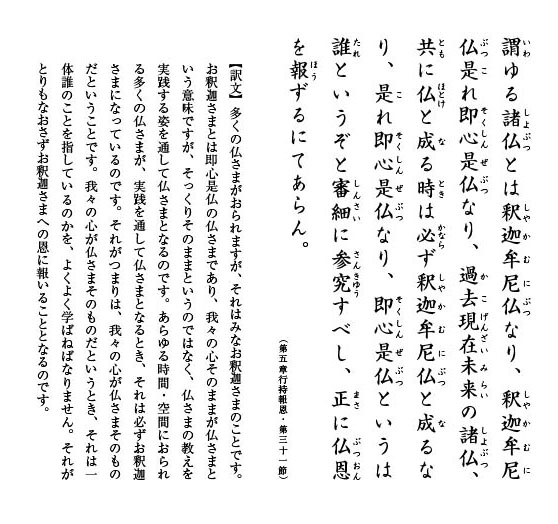 謂ゆる諸仏とは釈迦牟尼仏なり、釈迦牟尼
仏是れ即心是仏なり、過去現在未来の諸仏、
共に仏と成る時は必ず釈迦牟尼仏と成るな
り、是れ即心是仏なり、即心是仏というは
誰というぞと審細に参究すべし、正に仏恩
を報ずるにてあらん。
（第五章行持報恩・第三十一節）
【訳文】多くの仏さまがおられますが、それはみなお釈迦さまのことです。
お釈迦さまとは即心是仏の仏さまであり、我々の心そのままが仏さまと
いう意味ですが、そっくりそのままというのではなく、仏さまの教えを
実践する姿を通して仏さまとなるのです。あらゆる時間・空間におられ
る多くの仏さまが、実践を通して仏さまとなるとき、それは必ずお釈迦
さまになっているのです。それがつまりは、我々の心が仏さまそのもの
だということです。我々の心が仏さまそのものだというとき、それは一
体誰のことを指しているのかを、よくよく学ばねばなりません。それが
とりもなおさずお釈迦さまへの恩に報いることとなるのです。